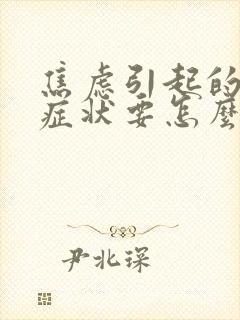 焦虑引起的
症状要怎麽
尹北琛